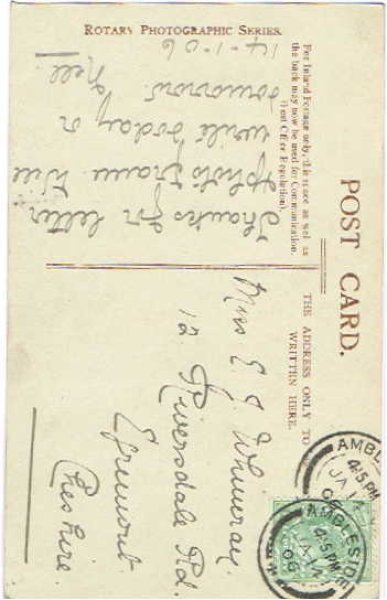 POST CARD.
For Inland Postage only, this space as well as
the back may now be used for Communication.
(Post Office Regulation).
THE ADDRESS ONLY TO
WRITTEN HERE.
ROTARY PHOTOGRAPHIC SERIES.
Thanks for letter
& photo frame. Will
write today or
tomorrow. Nell.
14-1-06
Miss E. J. Whimray.
12 Riversdale Rd.
Egremont
Cheshire.
AMBLE
4:5 PM
JA 14
06
AMBLESIDE
4:5 PM
JA 14
06